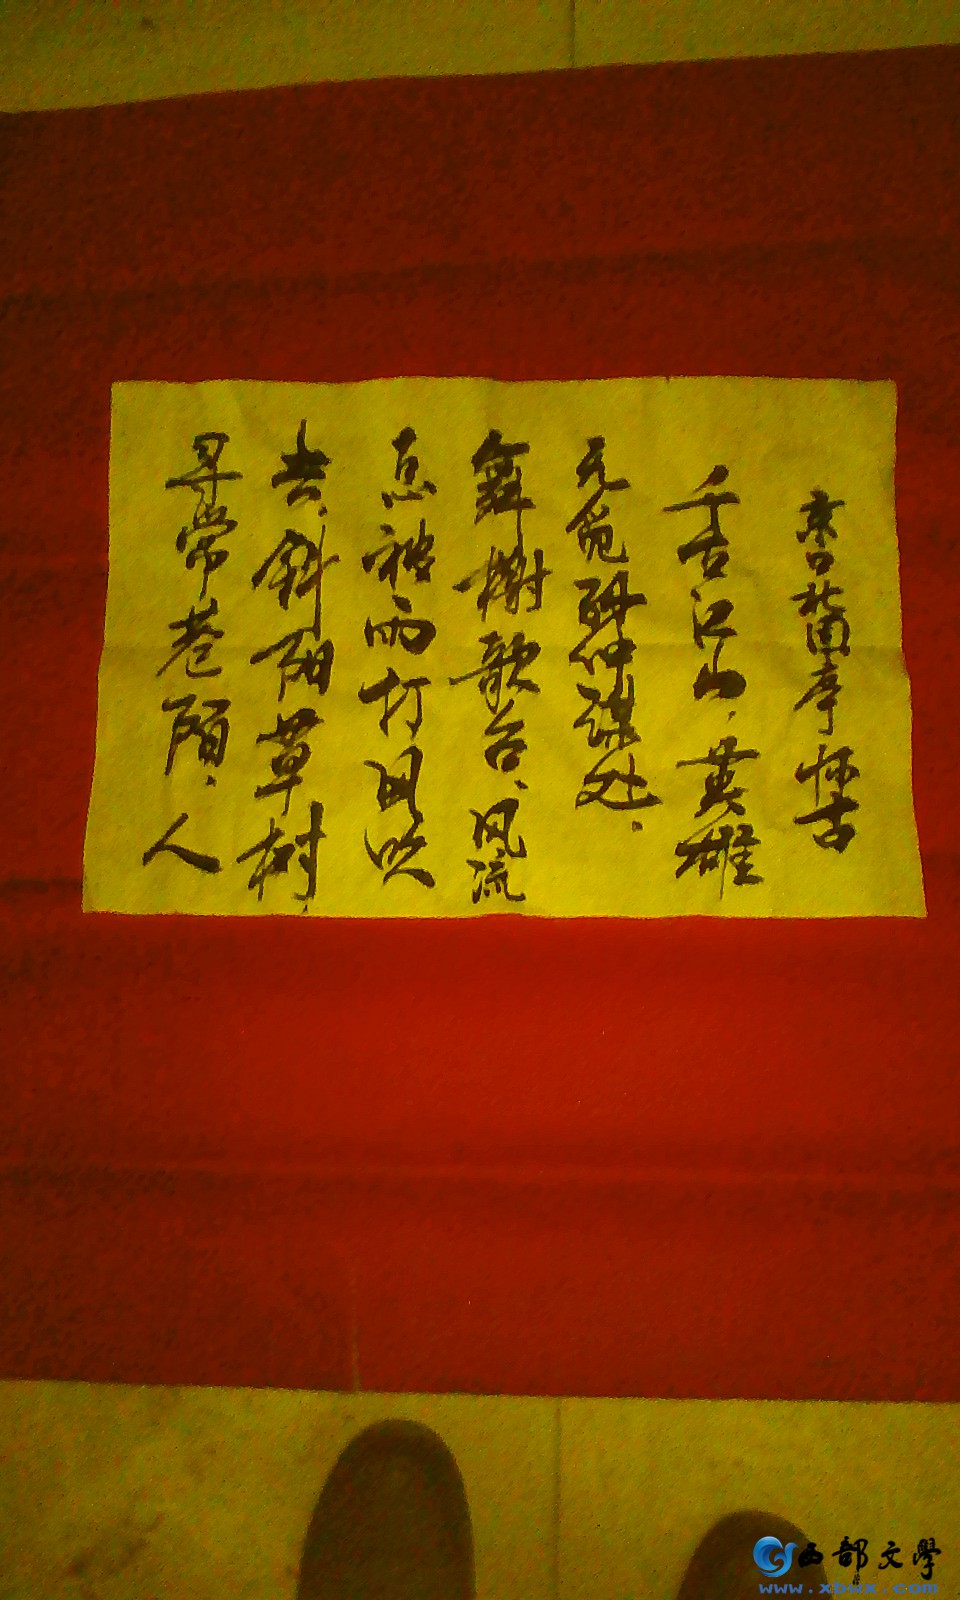 京口北固亭怀古
千古江山，英雄
无觅孙仲谋处，
舞榭歌台，风流
总被雨打风吹
去，斜阳草树，
寻常巷陌，人
西部文學
www.xbwx.com